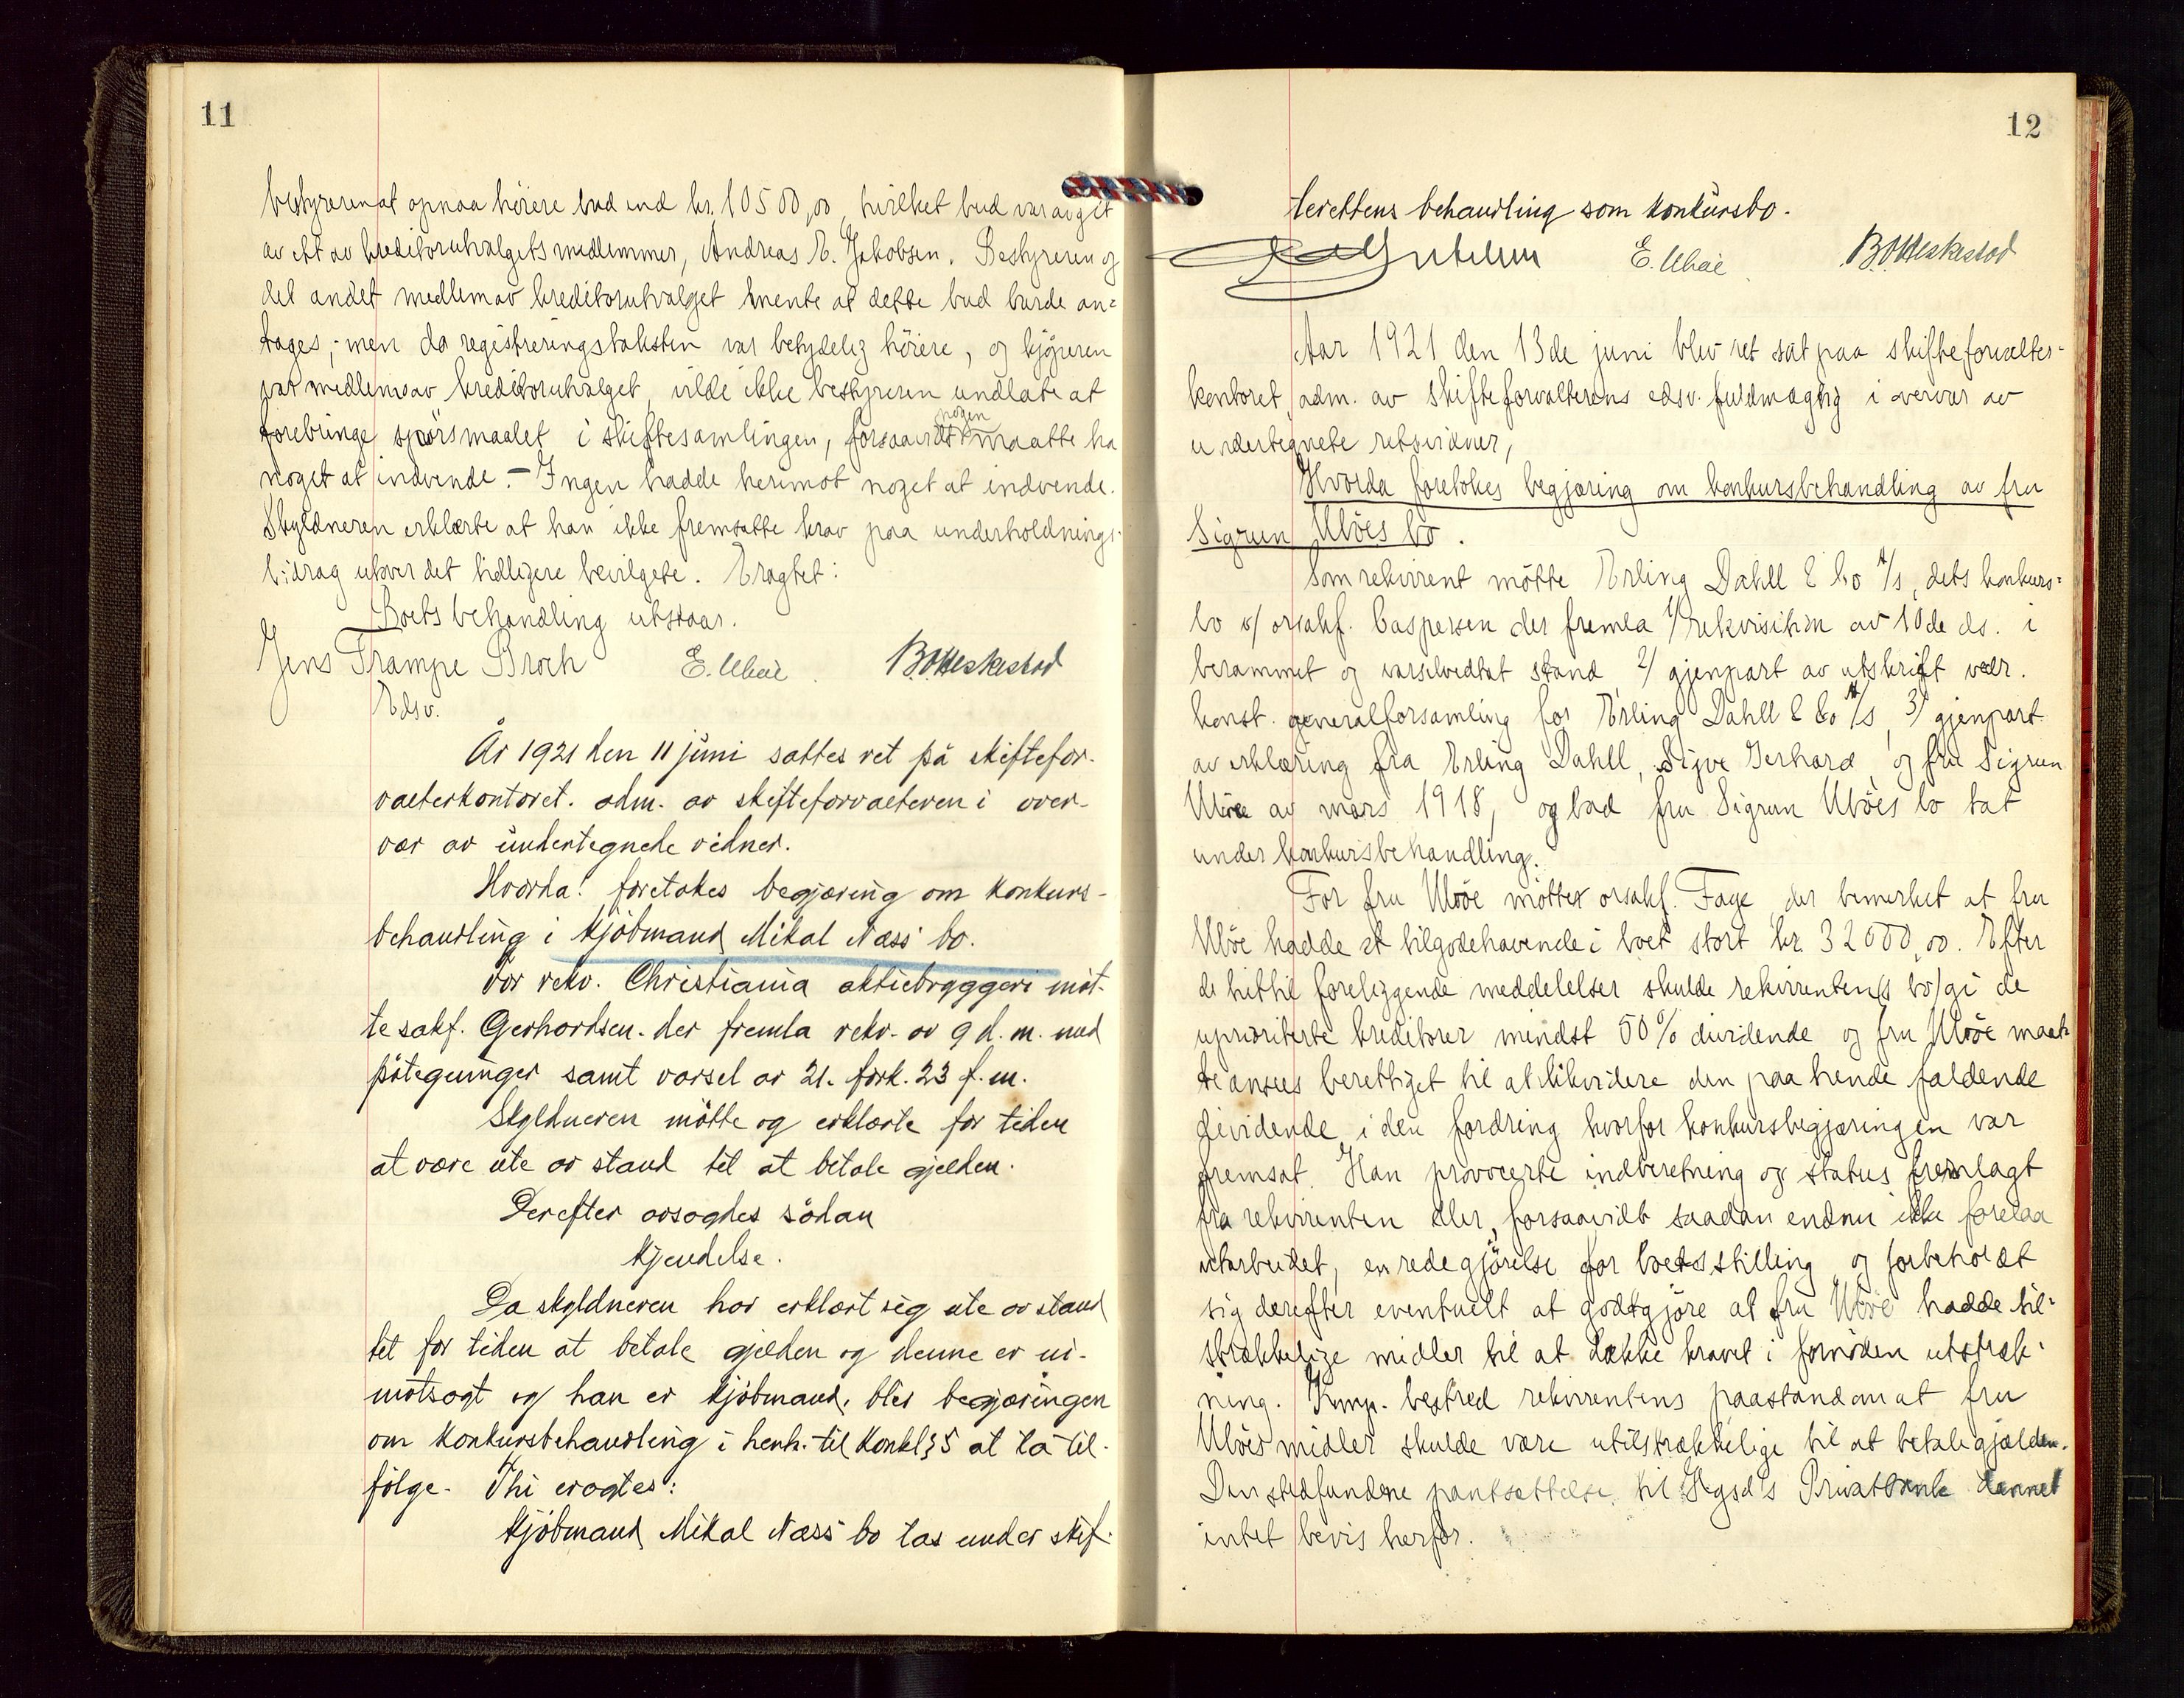 11
bestyreren at opnaa höiere bud end kr. 10500,00, hvilket bud var avgit
av ett av kreditorutvalgets medlemmer, Andreas E. Jakobsen. Bestyreren og
det andet medlem av kreditorutvalget mente at dette bud burde an-
tages; men da registreringstaksten var betydelig höiere, og kjöperen
var medlem av kreditorutvalget, vilde ikke bestyreren undlate at
forebringe spörsmaalet i skiftesamlingen, forsaavidt nogen maatte ha
noget at indvende. - Ingen hadde herimot noget at indvende.
Skyldneren erklærte at han ikke fremsatte krav paa underholdnings-
bidrag utover det tidligere bevilgede. Eragtet:
Boets behandling utstaar.
Jens Trampe Broch E. Uböe B.O. Heskestad
Edsv.
År 1921 den 11 juni sattes ret på skiftefor-
valterkontoret. adm. av skifteforvalteren i over-
vær av undertegnede vidner.
Hvorda! foretokes begjæring om konkurs-
behandling i kjöbmand Mikal Næss' bo.
For rekv. Christiania aktiebryggeri möt-
te sakf. Gerhardsen. der fremla rekv. av 9 d. m. med
påtegninger samt varsel av 21. fork. 23 f. m.
Skyldneren mötte og erklærte for tiden
at være ute av stand til at betale gjelden.
Derefter avsagdes sådan
kjendelse.
Da skyldneren har erklært sig ute av stand
tet for tiden at betale gjelden og denne er ui-
motsagt og han er kjöbmand, blir begjæringen
om konkursbehandling i henh. til konkl § 5 at ta til-
fölge. Thi eragtes:
Kjöbmand Mikal Næss' bo tas under skif-
12
terettens behandling som konkursbo.
E. Uböe B.O. Heskestad
Aar 1921 den 13de juni blev ret sat paa skifteforvalter-
kontoret adm. av skifteforvalterens edsv. fuldmægtig i overvær av
undertegnete retsvidner,
Hvorda foretokes begjæring om konkursbehandling av fru
Sigrun Uböes bo.
Som rekvirent mötte Erling Dahll & Co A/S, dets konkurs-
bo v/ orsakf. Caspersen der fremla 1/ rekvisition av 10de ds. i
berammet og varselvedtat stand 2/ gjenpart av utskrift vedr.
konst. generalforsamling for Erling Dahll & Co A/S, 3/ gjenpart
av erklæring fra Erling Dahll, Sigve Gerhard og fru Sigrun
Uböe av mars 1918, og bad fru Sigrun Uböes bo tat
under konkursbehandling.
For fru Uböe mötte orsakf. Faye der bemerket at fru
Uböe hadde et tilgodehavende i boet stort kr. 32000,00. Efter
de hittil foreliggende meddelelser skulde rekvirenten(s bo) gi de
uprioriterte kreditorer mindst 50% dividende og fru Uböe maat-
te ansees berettiget til at likvidere den paa hende faldende
dividende i den fordring hvorfor konkursbegjæringen var
fremsat. Han provocerte indberetning og status fremlagt
fra rekvirenten eller, forsaavidt saadan endnu ikke forelaa
utarbeidet, en redegjörelse for boets stilling og forbeholdt
sig derefter eventuelt at godtgjöre at fru Uböe hadde til-
strækkelige midler til at dække kravet i fornöden utstræk-
ning. Komp. bestred rekvirentens paastand om at fru
Uböes midler skulde være utilstrækkelige til at betale gjælden.
Den stedfundne pantsættelse til Hgsd's Privatbank dannet
intet bevis herfor.